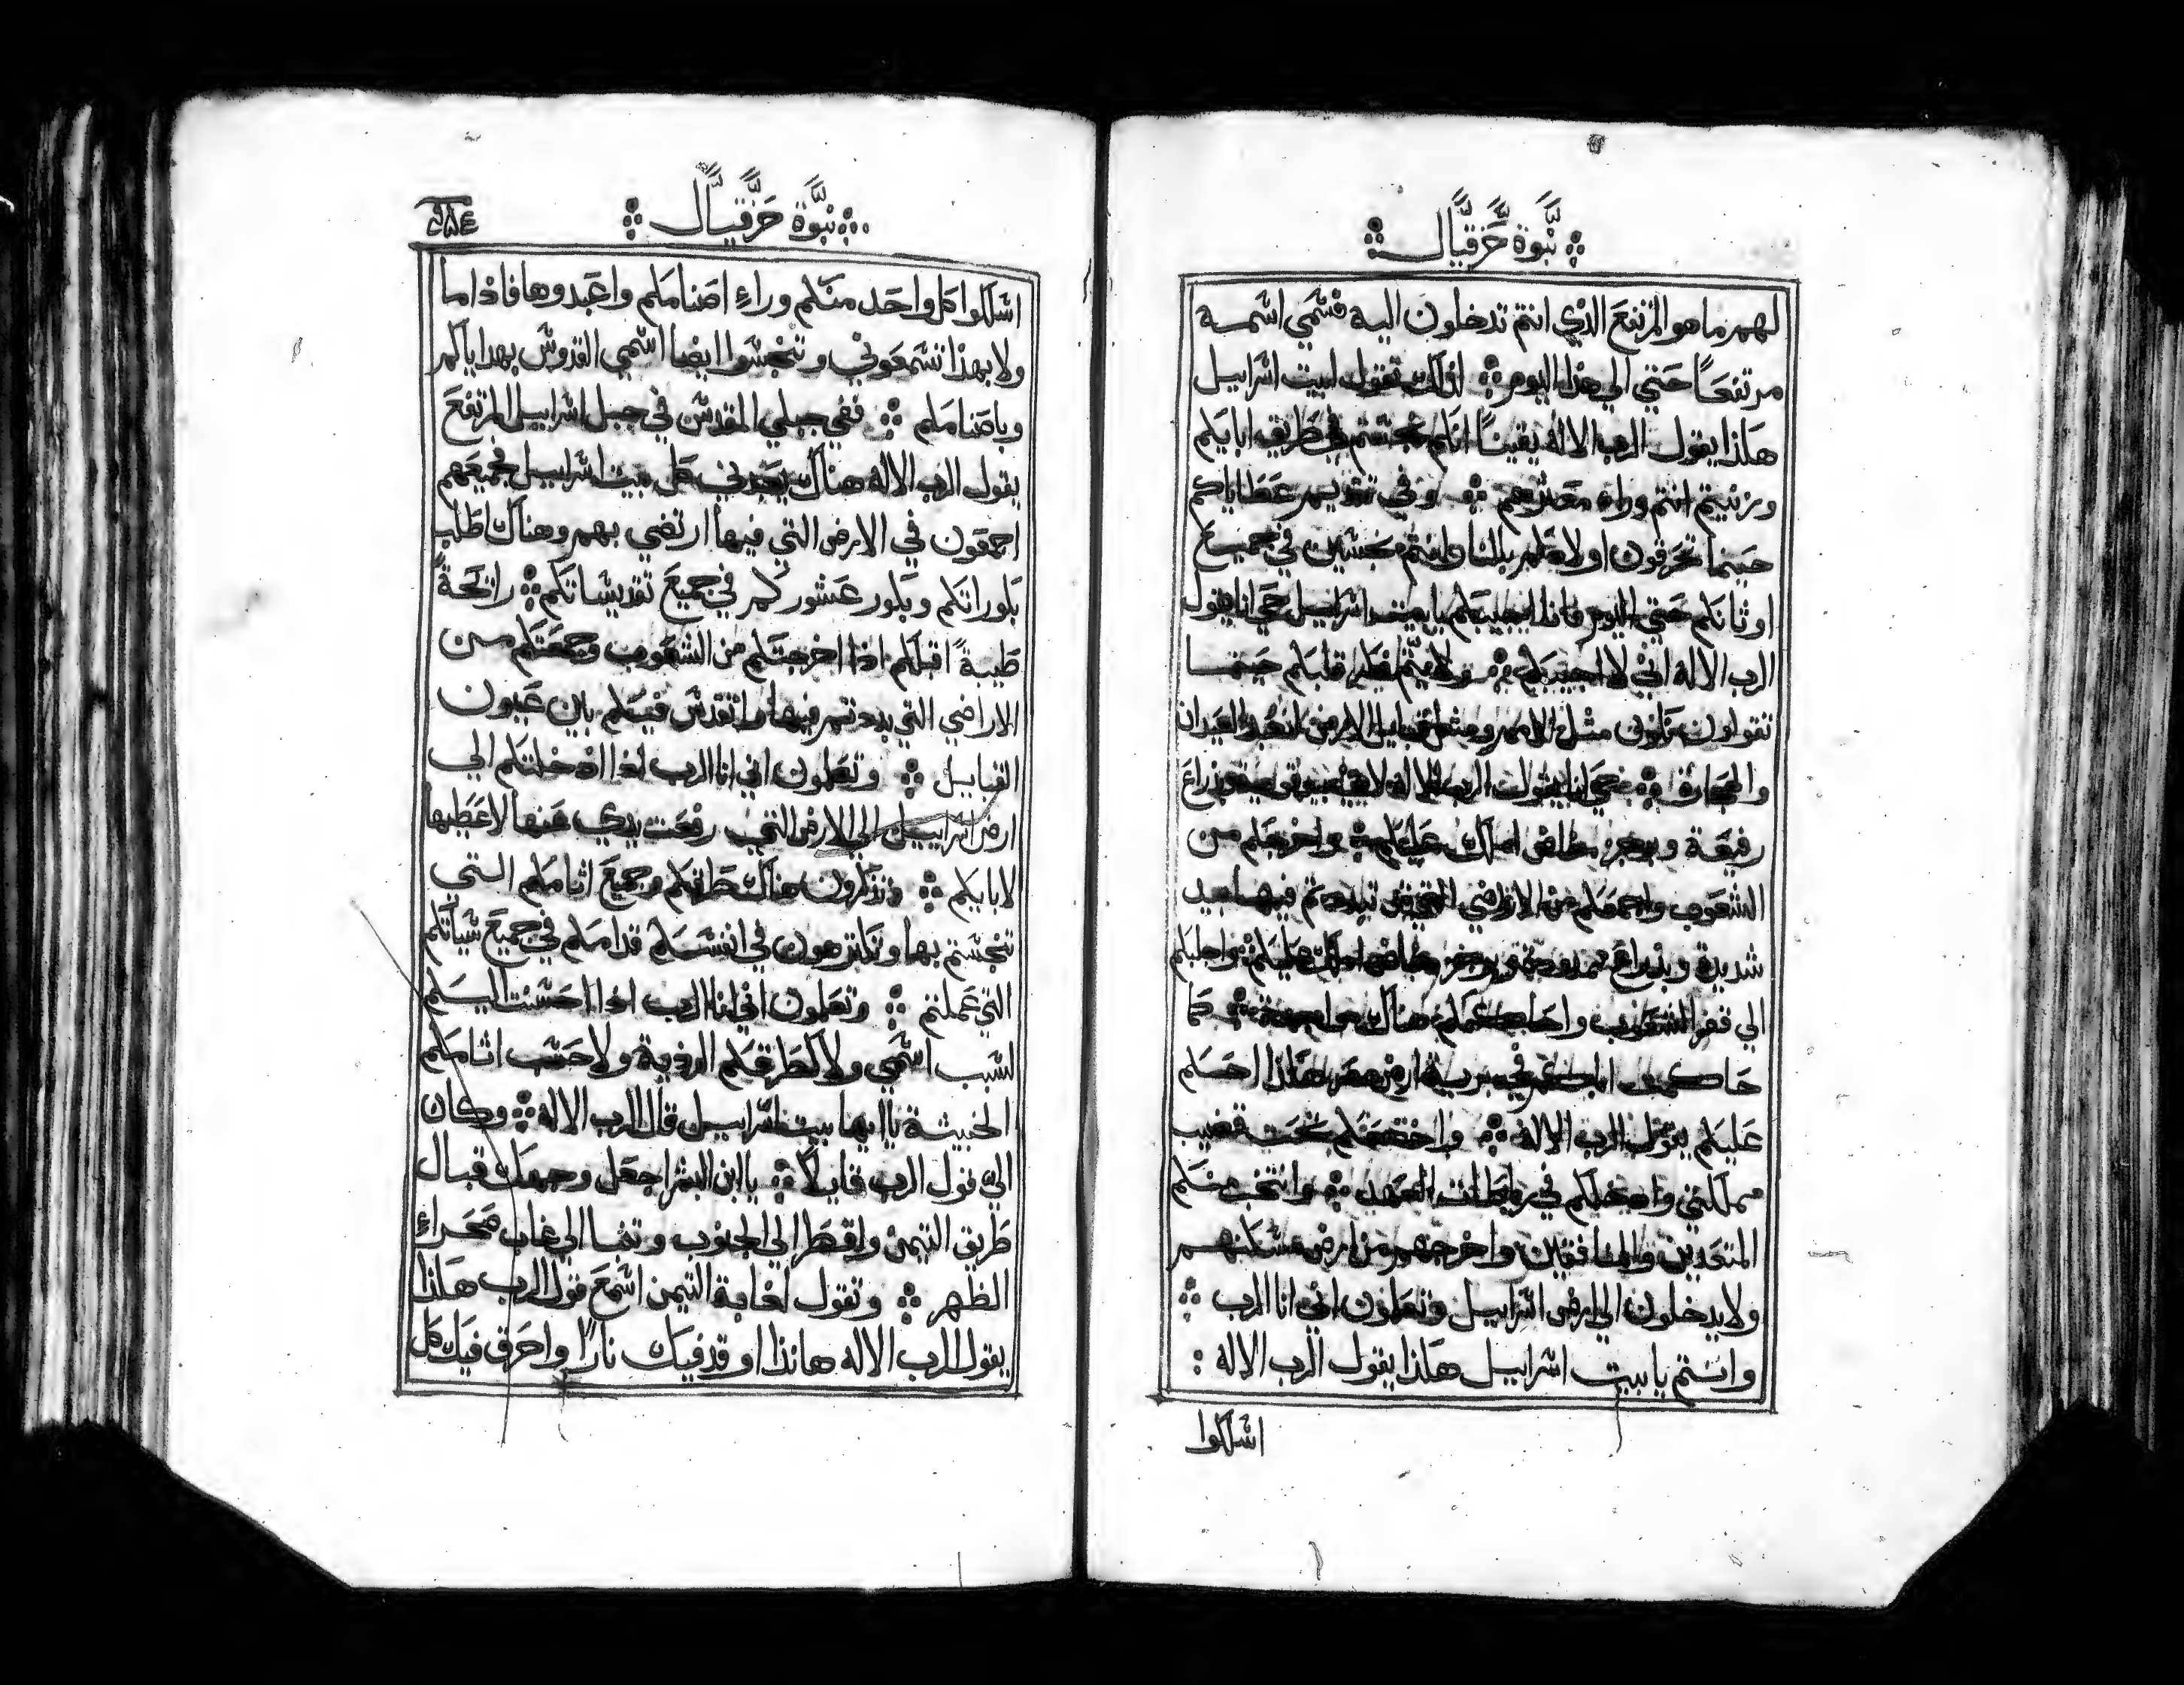 نبوة حزقيال
لهم ما هو المرتفع الذي انتم تدخلون اليه فسمي اسمه
مرتفعًا حتي الي هذا اليوم لذلك تقول لبيت اسراييل
هكذا يقول الرب الاله يقينًا انكم تنجستم في طريق ابايكم
وزنيتم انتم وراء معثرتهم وفي تقديم عطاياكم
حينما تحرقون اولادكم بالنار انتم منجسين في جميع
اوثانكم حتي اليوم فاذا اجيبكم يا بيت اسراييل حي انا يقول
الرب الاله اني لا اجيبكم ولا يتم فكر قلبكم حينما
تقولون نكون مثل الامم ومثل قبايل الارض لنعبد العيدان
والحجارة حي انا يقول الرب الاله لا بيد قوية وذراع
رفيعة وبرجز املك عليكم واخرجكم من
الشعوب واجمعكم من الاراضي التي تبددتم فيها بيد
شديدة وبذراع ممدودة وبرجز املك عليكم واجلبكم
الي قفر الشعوب واحاكمكم هناك كما
حاكمت اباكم في برية ارض مصر هكذا احكم
عليكم يقول الرب الاله واخضعكم تحت قضيب
مملكتي وادخلكم في رباطات العهد وانتخب منكم
المتعديين والمنافقين واخرجهم من ارض مسكنهم
ولا يدخلون الي ارض اسراييل وتعلمون اني انا الرب
وانتم يا بيت اسراييل هكذا يقول الرب الاله :
اسلكوا
نبوة حزقيال
اسلكوا كل واحد منكم وراء اصنامكم واعبدوها فاذا ما
ولا بهذا تسمعوني وتنجسوا ايضا اسمي القدوس بهداياكم
وباصنامكم ففي جبلي المقدس في جبل اسراييل المرتفع
يقول الرب الاله هناك يعبدني كل بيت اسراييل جميعهم
اجمعون في الارض التي فيها ارتضي بهم وهناك اطلب
بكوراتكم وبكور عشوركم في جميع تقديساتكم رائحةً
طيبةً اقبلكم اذا اخرجتكم من الشعوب وجمعتكم من
الاراضي التي بددتم فيها واتقدس فيكم باين عيون
القبايل وتعلمون اني انا الرب اذا ادخلتكم الي
ارض اسراييل الي الارض التي رفعت يدي عنها لاعطيها
لابايكم وتذكرون هناك طرقكم وجميع اثامكم التي
تنجستم بها وتكرهون في انفسكم قدامكم في جميع سياتكم
التي عملتم وتعلمون اني انا الرب اذا احسنت اليكم
لسبب اسمي ولا كطرقكم الردية ولا حسب اثامكم
الخبيثة يا ايها بيت اسراييل قال الرب الاله وكان
الي قول الرب قايلًا يا ابن البشر اجعل وجهك قبال
طريق التيمن واقطر الي الجنوب وتنبا الي غاب صحراء
الظهر وتقول لغابة التيمن اسمع قول الرب هكذا
يقول الرب الاله هانذا اوقد فيك نارًا واحرق فيك كل